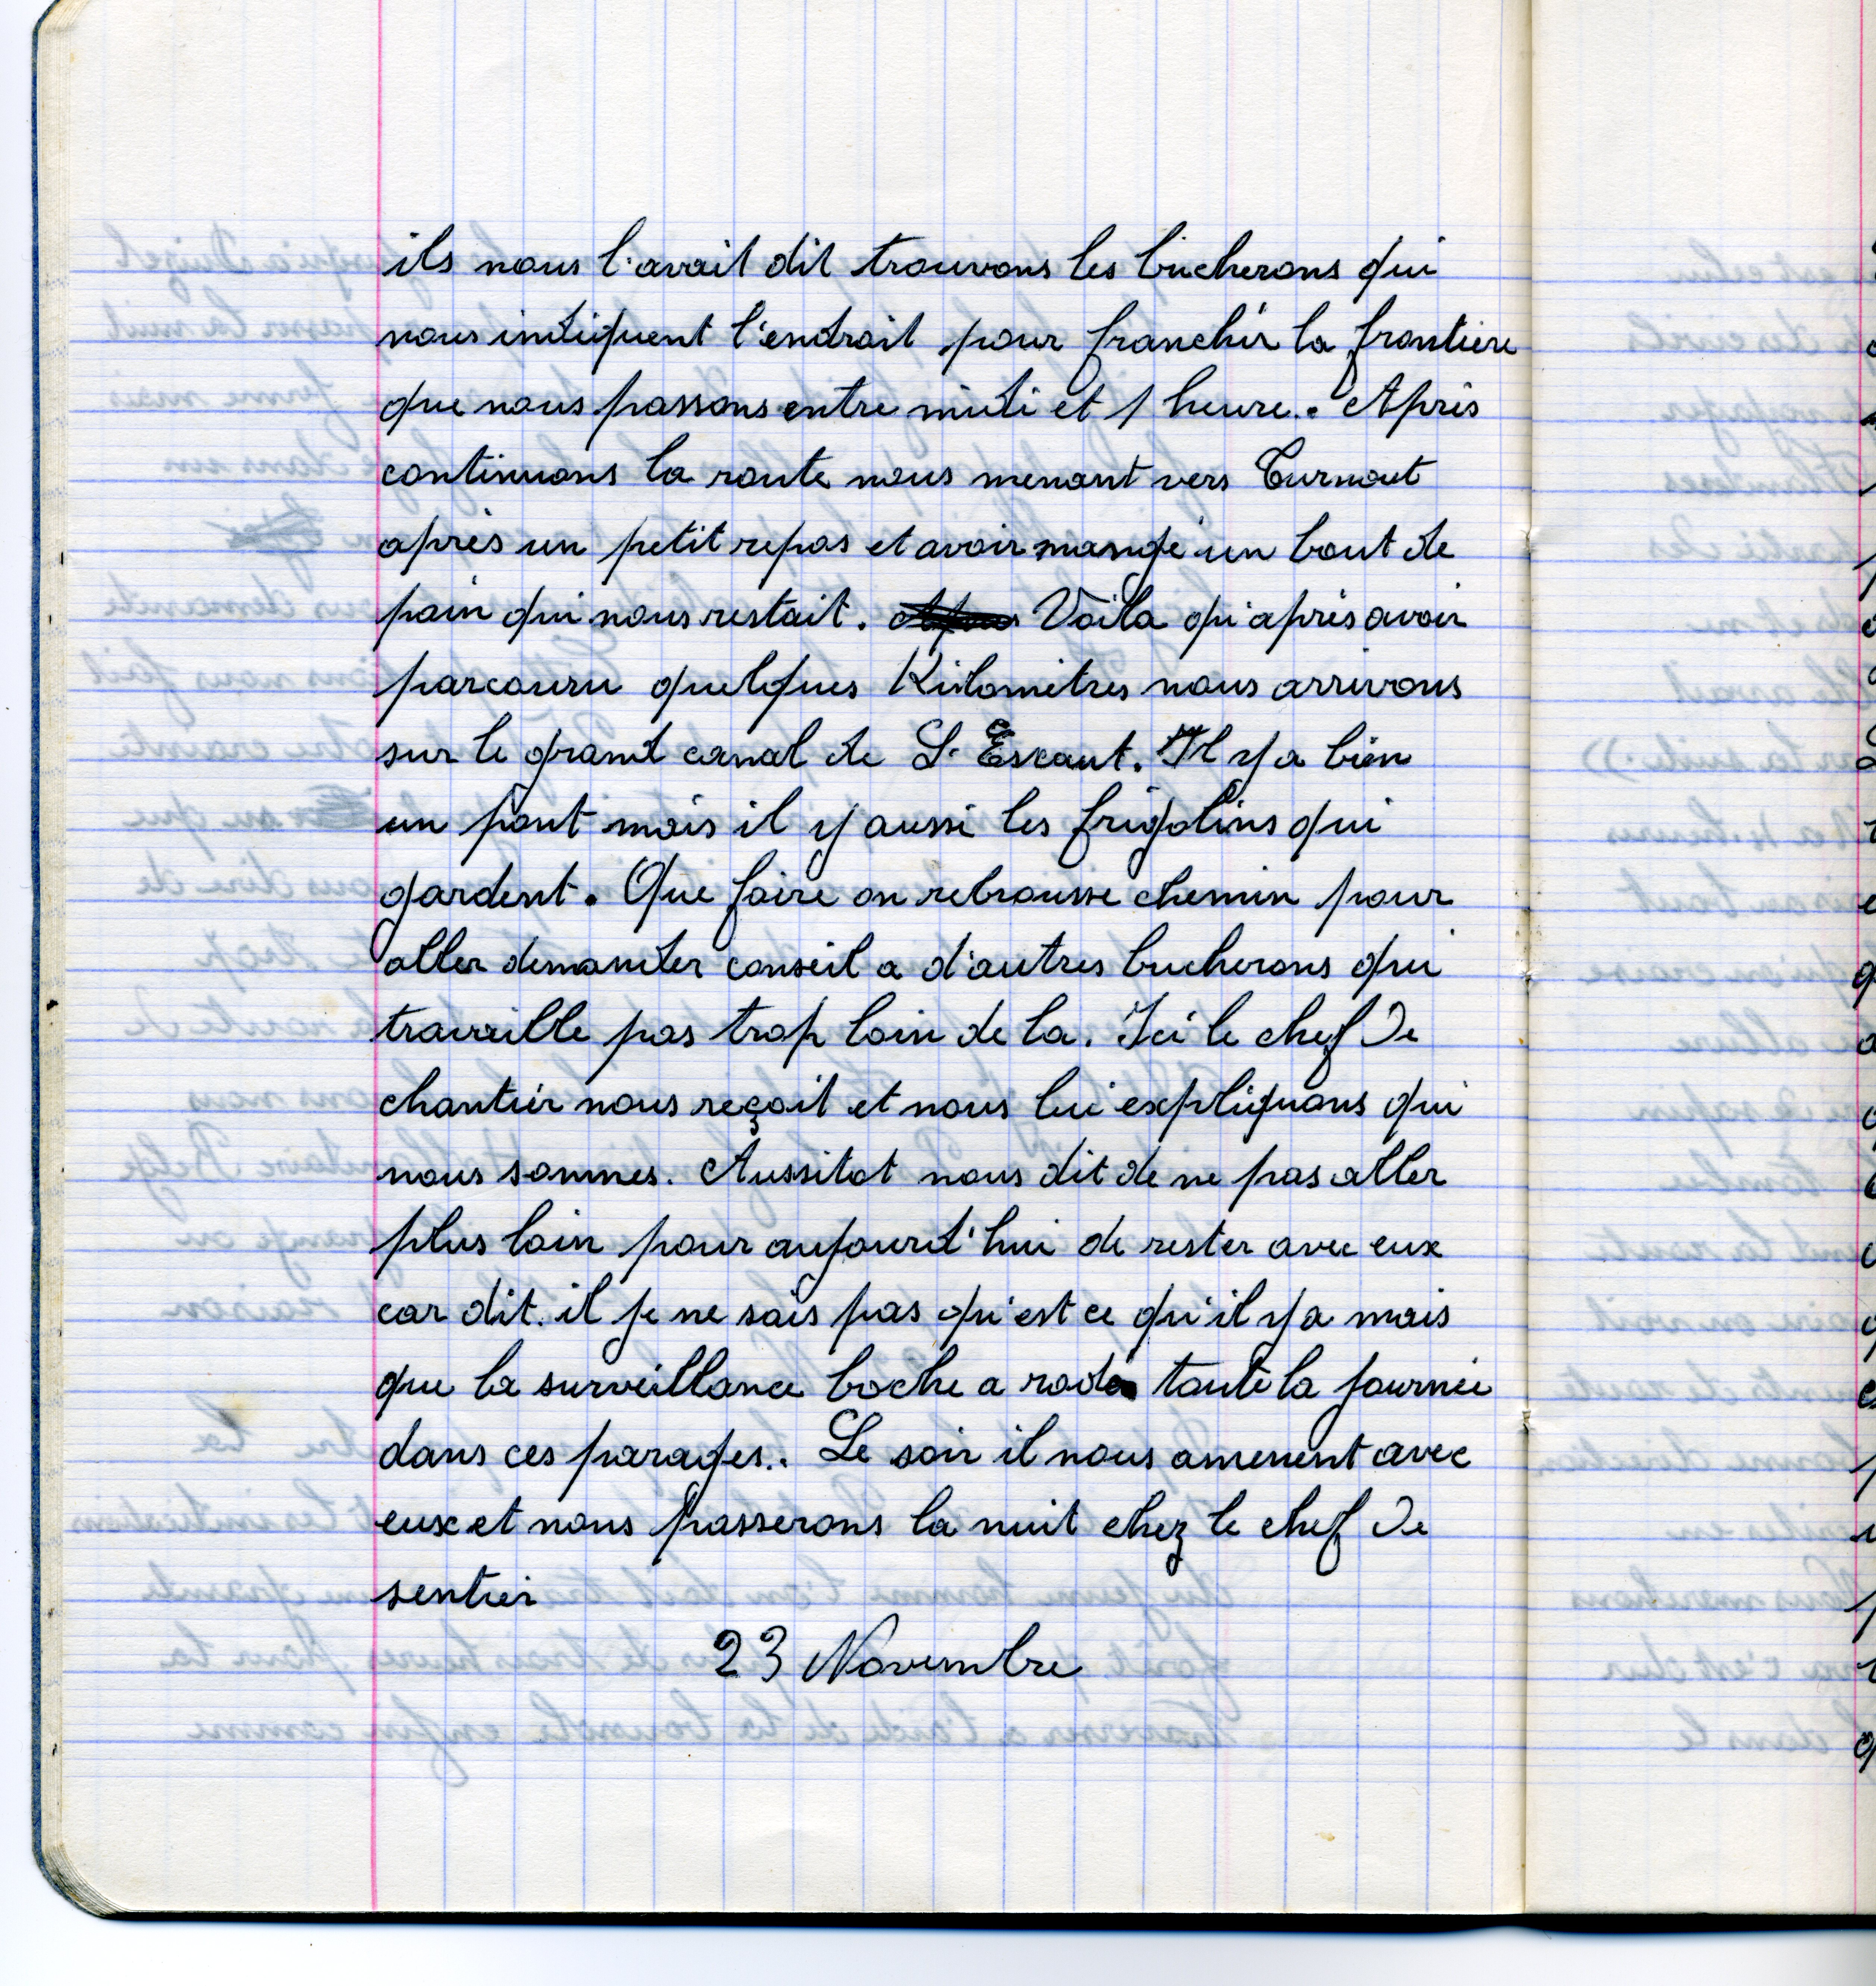 ils nous l'avait dit trouvons les bucherons qui
nous indiquent l'endroit pour franchir la frontiere
que nous passons entre midi et 1 heure. Après
continuons la route nous menant vers Turnout
après un petit repas et avoir mangé un bout de
pain qui nous restait. Voila qu'après avoir
parcouru quelques Kilomètres nous arrivons
sur le grand canal de L'Escaut. Il y a bien
un pont mais il y aussi les frigolins qui
gardent. Que faire on rebrousse chemin pour
aller demander conseil a d'autres bucherons qui
travaille pas trop loin de la. Ici le chef de
chantier nous reçoit et nous lui expliquons qui
nous sommes. Aussitot nous dit de ne pas aller
plus loin pour aujourd'hui de rester avec eux
car dit.il je ne sais pas qu'est ce qu'il y a mais
que la surveillance boche a rodé toute la journée
dans ces parages.. Le soir il nous amenent avec
eux et nous passerons la nuit chez le chef de
sentier
23 Novembre